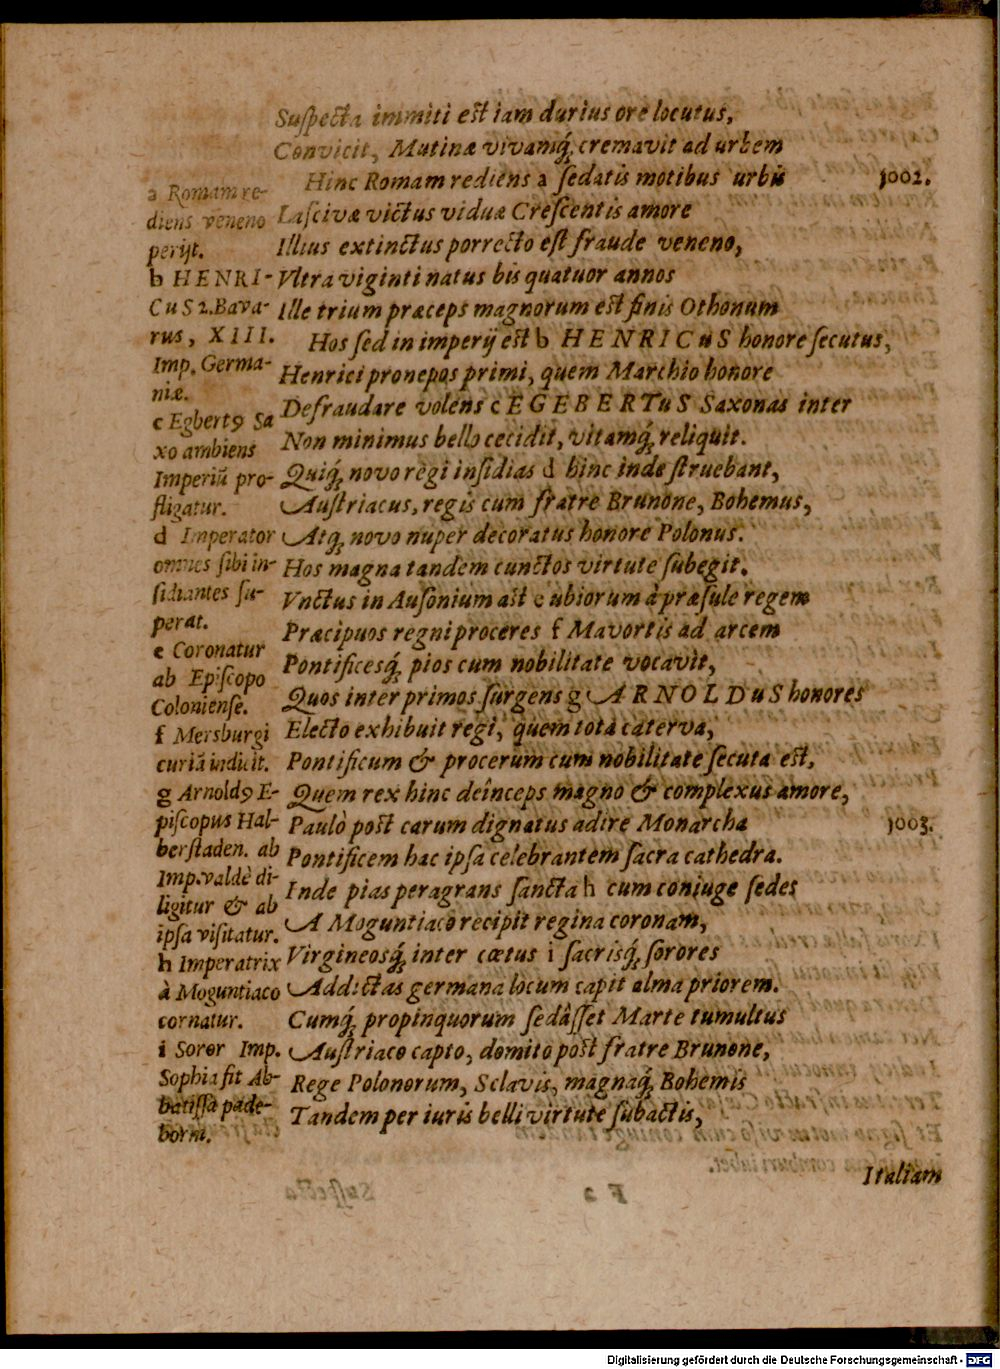 Suſpecta immiti eſt iam durius ore locutus,
Convicit, Mutinæ vivamq́; cremavit ad urbem
Hinc Romam rediens a ſedatis motibus urbis 1002.
Laſcivæ victus viduæ Creſcentis amore
Illius extinctus porrecto eſt fraude veneno,
Vltra viginti natus bis quatuor annos
Ille trium præceps magnorum eſt finis Othonum
Hos ſed in imperij eſt b HENRICuS honore ſecutus,
Henrici pronepos primi, quem Marchio honore
Defraudare volens c EGEBERTuS Saxonas inter
Non minimus bello cecidit, vitamq́; reliquit.
Quiq́; novo regi inſidias d hinc inde ſtruebant,
Auſtriacus, regis cum fratre Brunone, Bohemus,
Atq́; novo nuper decoratus honore Polonus.
Hos magna tandem cunctos virtute ſubegit.
Vnctus in Auſonium aſt e ubiorum à præſule regem
Præcipuos regni proceres f Mavortis ad arcem
Pontificesq́; pios cum nobilitate vocavit,
Quos inter primos ſurgens g ARNOLDuS honores
Electo exhibuit regi, quem tota caterva,
Pontificum & procerum cum nobilitate ſecuta eſt,
Quem rex hinc deînceps magno & complexus amore,
Paulò poſt carum dignatus adire Monarcha 1003.
Pontificem hac ipſa celebrantem ſacra cathedra.
Inde pias peragrans ſancta h cum coniuge ſedes
A Moguntiaco recipit regina coronam,
Virgineosq́; inter cœtus i ſacrisq́; ſorores
Addictas germana locum capit alma priorem.
Cumq́; propinquorum ſedâſſet Marte tumultus
Auſtriaco capto, domito poſt fratre Brunone,
Rege Polonorum, Sclavis, magnaq́; Bohemis
Tandem per iuris belli virtute ſubactis,
Italiam
a Romam re-
diens veneno
perijt.
b HENRI-
CuS 2. Bava-
rus, XIII.
Imp. Germa-
niæ.
c Egbertꝰ Sa
xo ambiens
Imperiũ pro-
fligatur.
d Imperator
omnes ſibi in-
ſidiantes ſu-
perat.
e Coronatur
ab Epiſcopo
Colonienſe.
f Mersburgi
curiã indicit.
g Arnoldꝰ E-
piſcopus Hal-
berſtaden. ab
Imp. valdè di-
ligitur & ab
ipſa viſitatur.
h Imperatrix
à Moguntiaco
cornatur.
i Soror Imp.
Sophia fit Ab-
batiſſa pade-
borni.
Digitalisierung gefördert durch die Deutsche Forschungsgemeinschaft - DFG